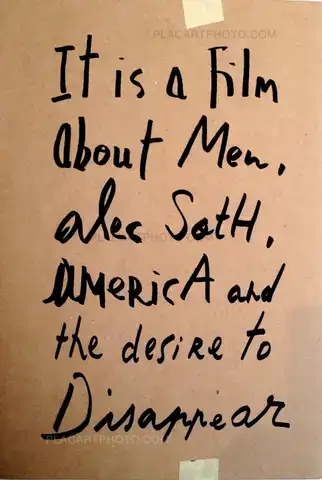 PLACARTPHOTO.COM
It is a Film
about Men,
alec SotH,
PLACARTPHOTO.COM
AMERICA and
the desire to
Disappear
PLACARTPHOTO.COM